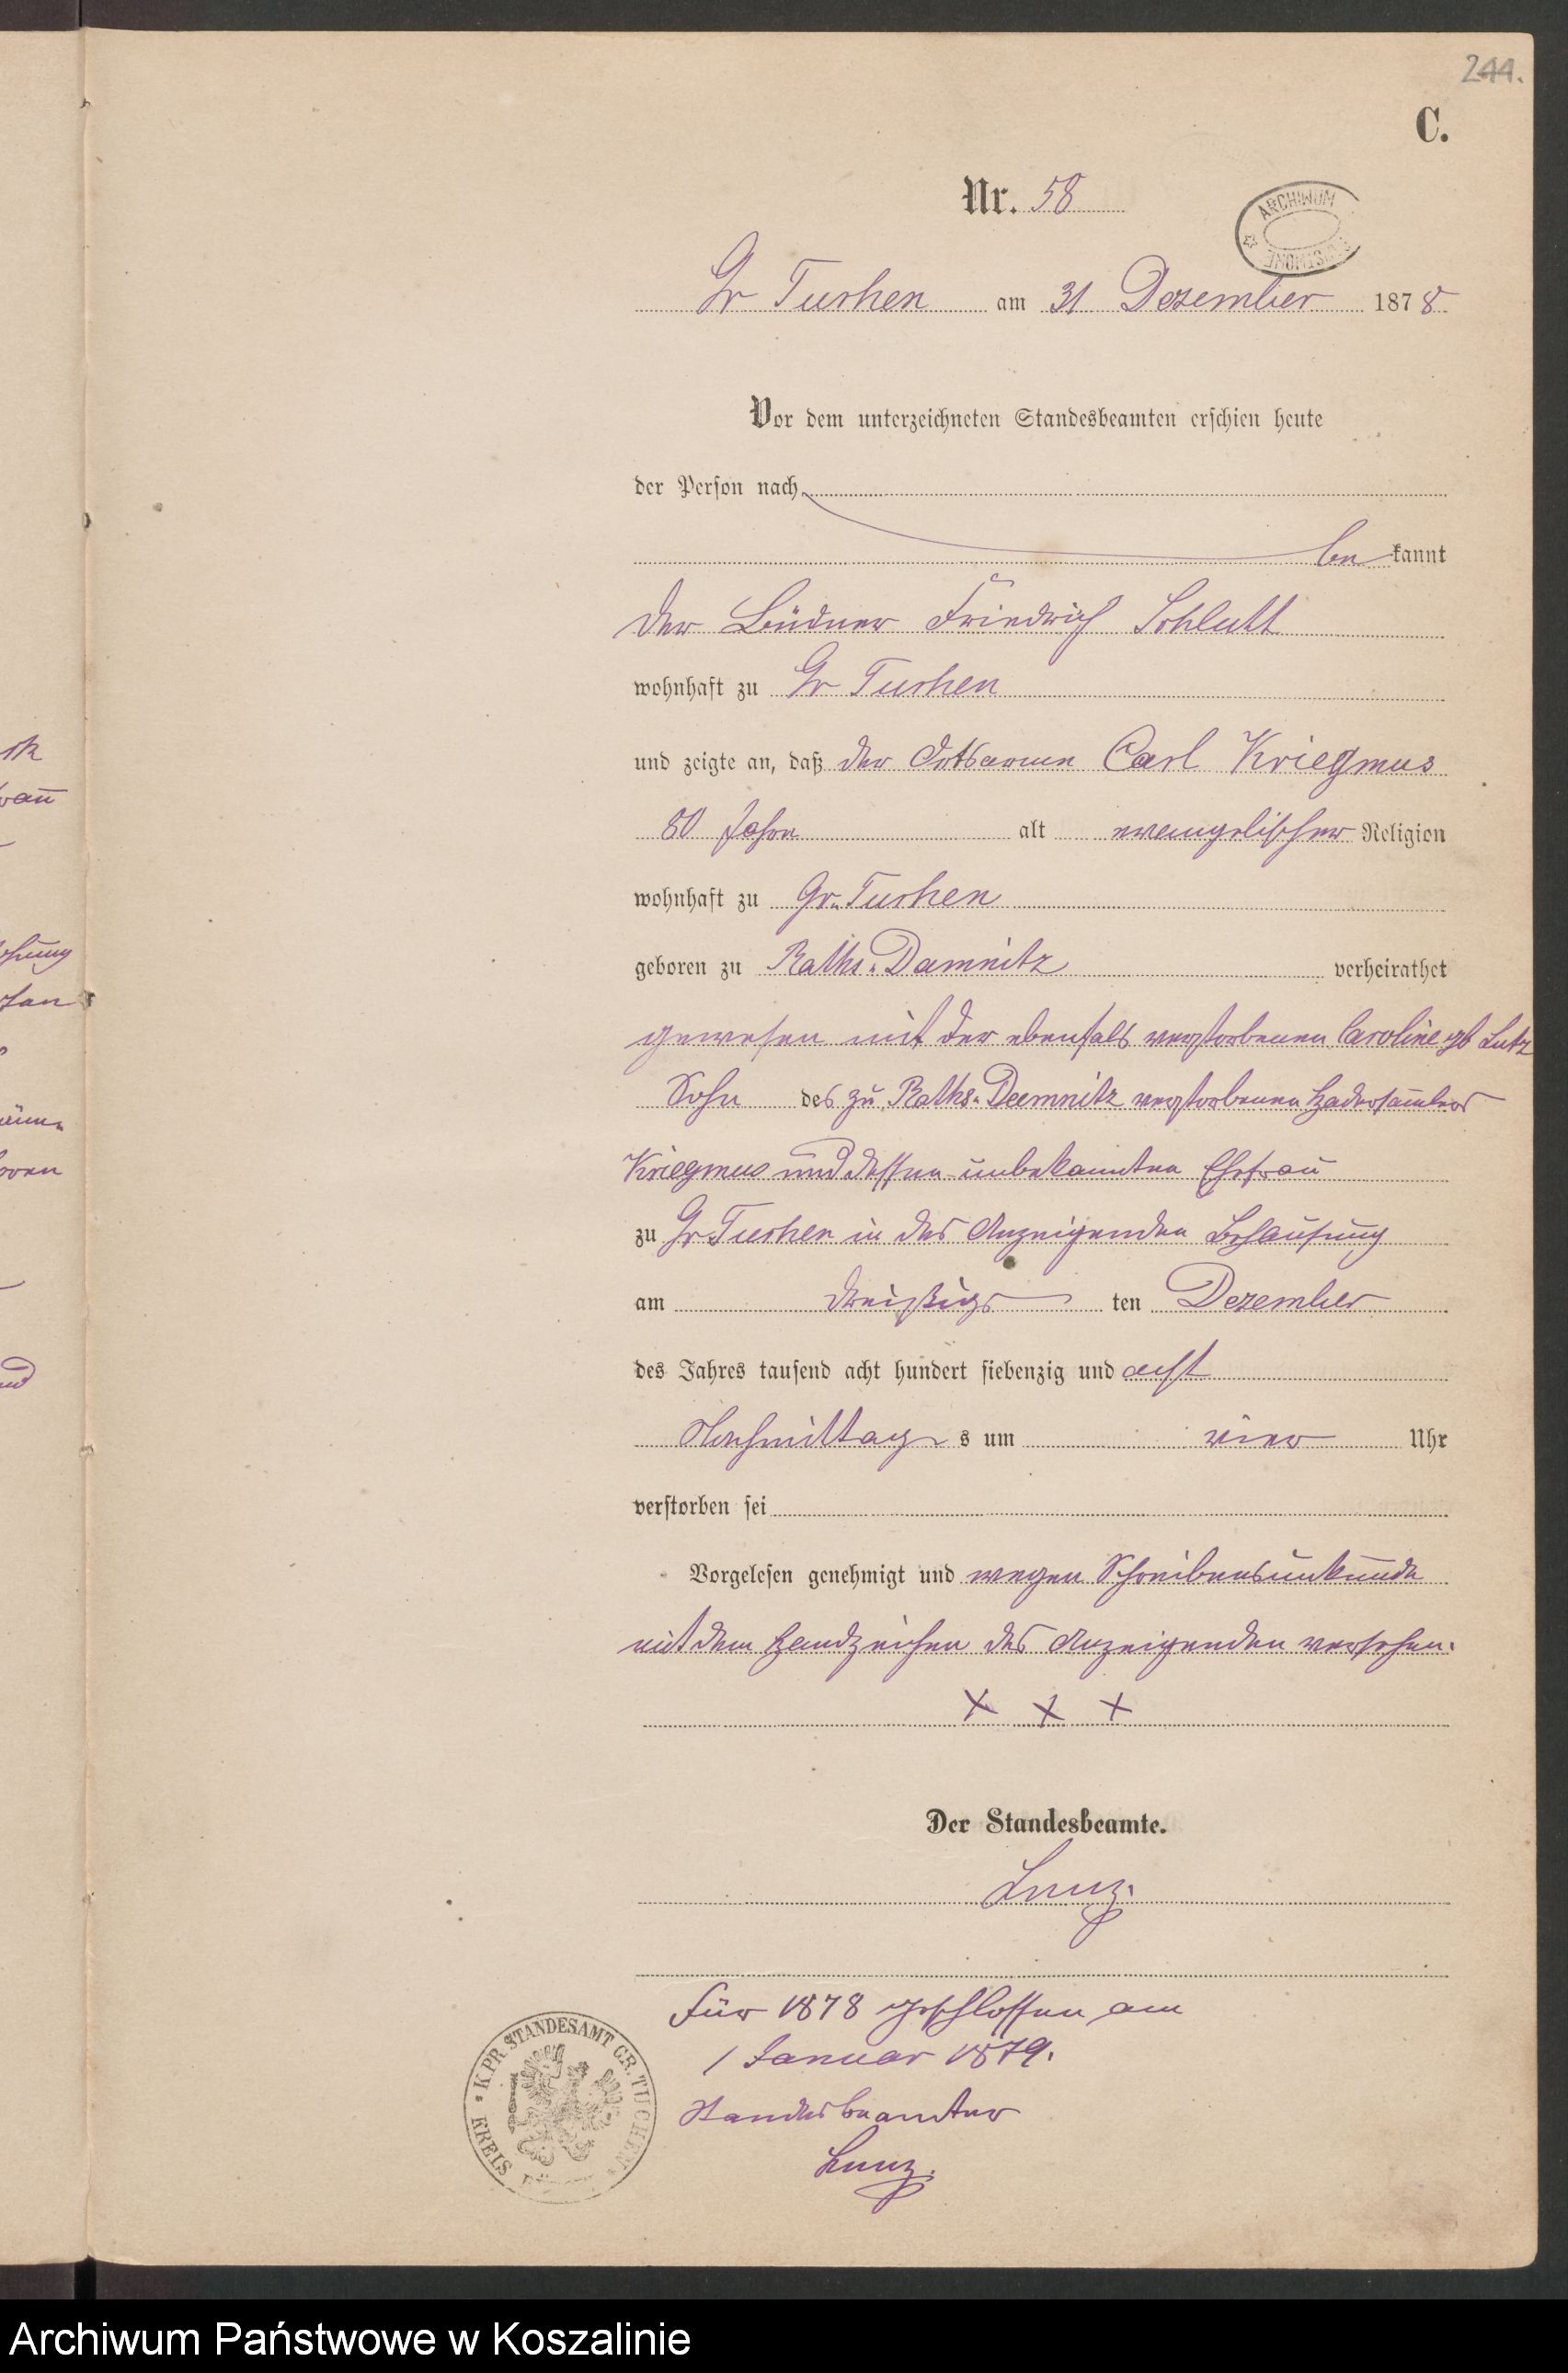 244.
C.
Nr. 58
ARCHIWUM
Gr Tuchen am 31 Dezember 1878
Vor dem unterzeichneten Standesbeamten erschien heute
der Person nach
be kannt
der Büdner Friedrich Schlutt
wohnhaft zu Gr Tuchen
und zeigte an, daß der Ortsarme Carl Kriegmus
80 Jahre alt evangelischer Religion
wohnhaft zu Gr. Tuchen
geboren zu Raths-Damnitz verheirathet
gewesen mit der ebenfals verstorbenen Caroline gb Lutz
Sohn des zu Raths-Damnitz verstorbenen Hadersamler
Kriegmus und dessen unbekannten Ehefrau
zu Gr Tuchen in des Anzeigenden Behausung
am dreißigs ten Dezember
des Jahres tausend acht hundert siebenzig und acht
Nachmittag s um vier Uhr
verstorben sei
Vorgelesen genehmigt und wegen Schreibensunkunde
mit dem Handzeichen des Anzeigenden versehen.
X X X
Der Standesbeamte.
Lenz.
Für 1878 geschlossen am
1 Januar 1879.
Standesbeamter
Lenz.
K.PR. STANDESAMT GR. TUCHEN
KREIS
Archiwum Państwowe w Koszalinie